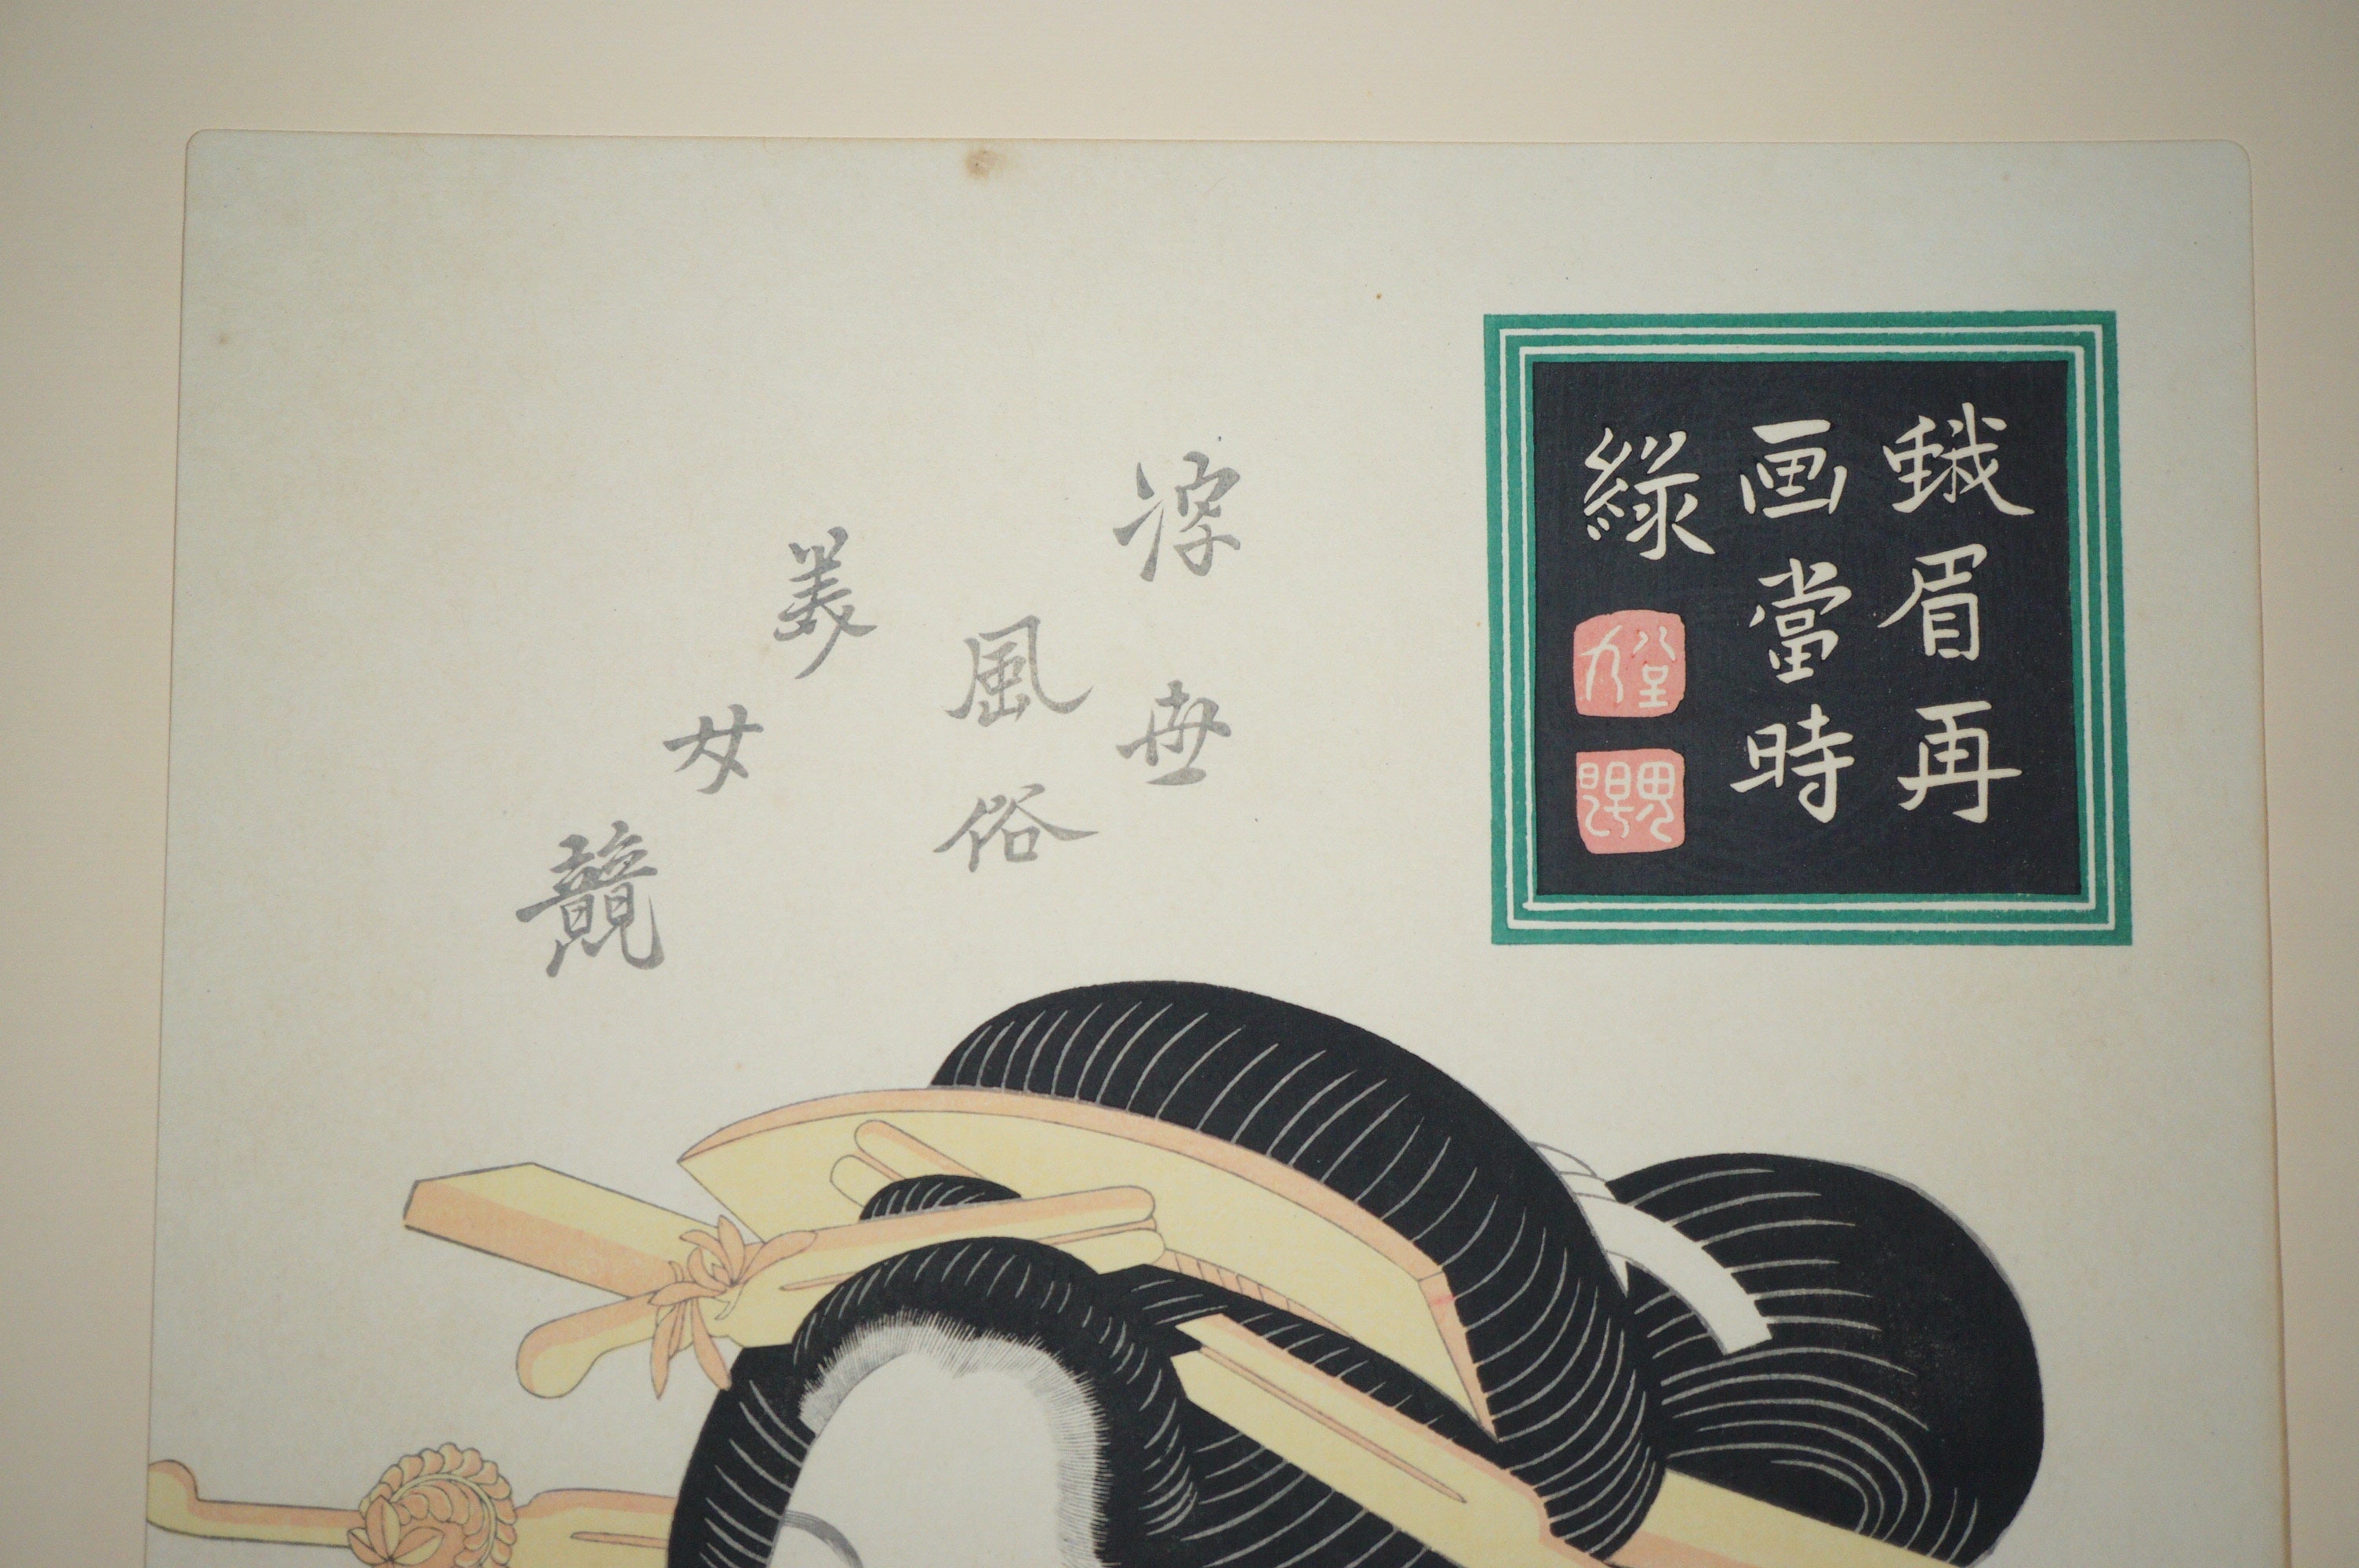 蛾眉再
画當時
綠
浮世
風俗
美
女
競